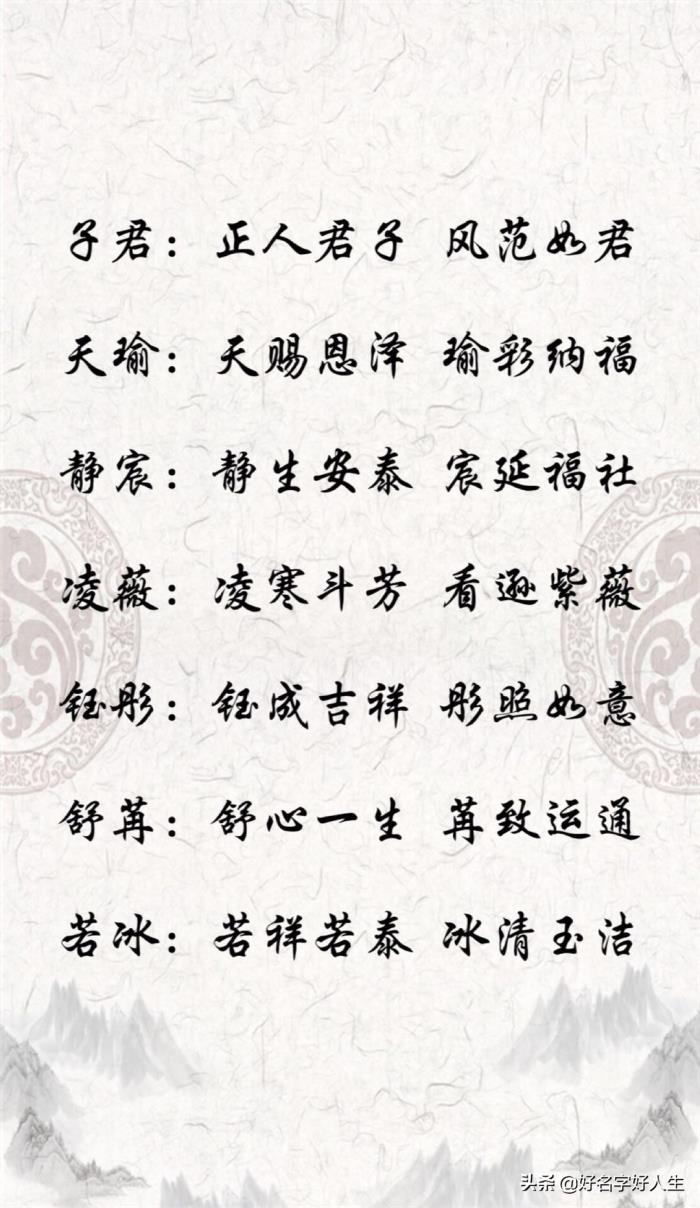 子君：正人君子 风范如君
天瑜：天赐恩泽 瑜彩纳福
静宸：静生安泰 宸延福社
凌薇：凌寒斗芳 看逊紫薇
钰彤：钰成吉祥 彤照如意
舒苒：舒心一生 苒致运通
若冰：若祥若泰 冰清玉洁
头条 @好名字好人生